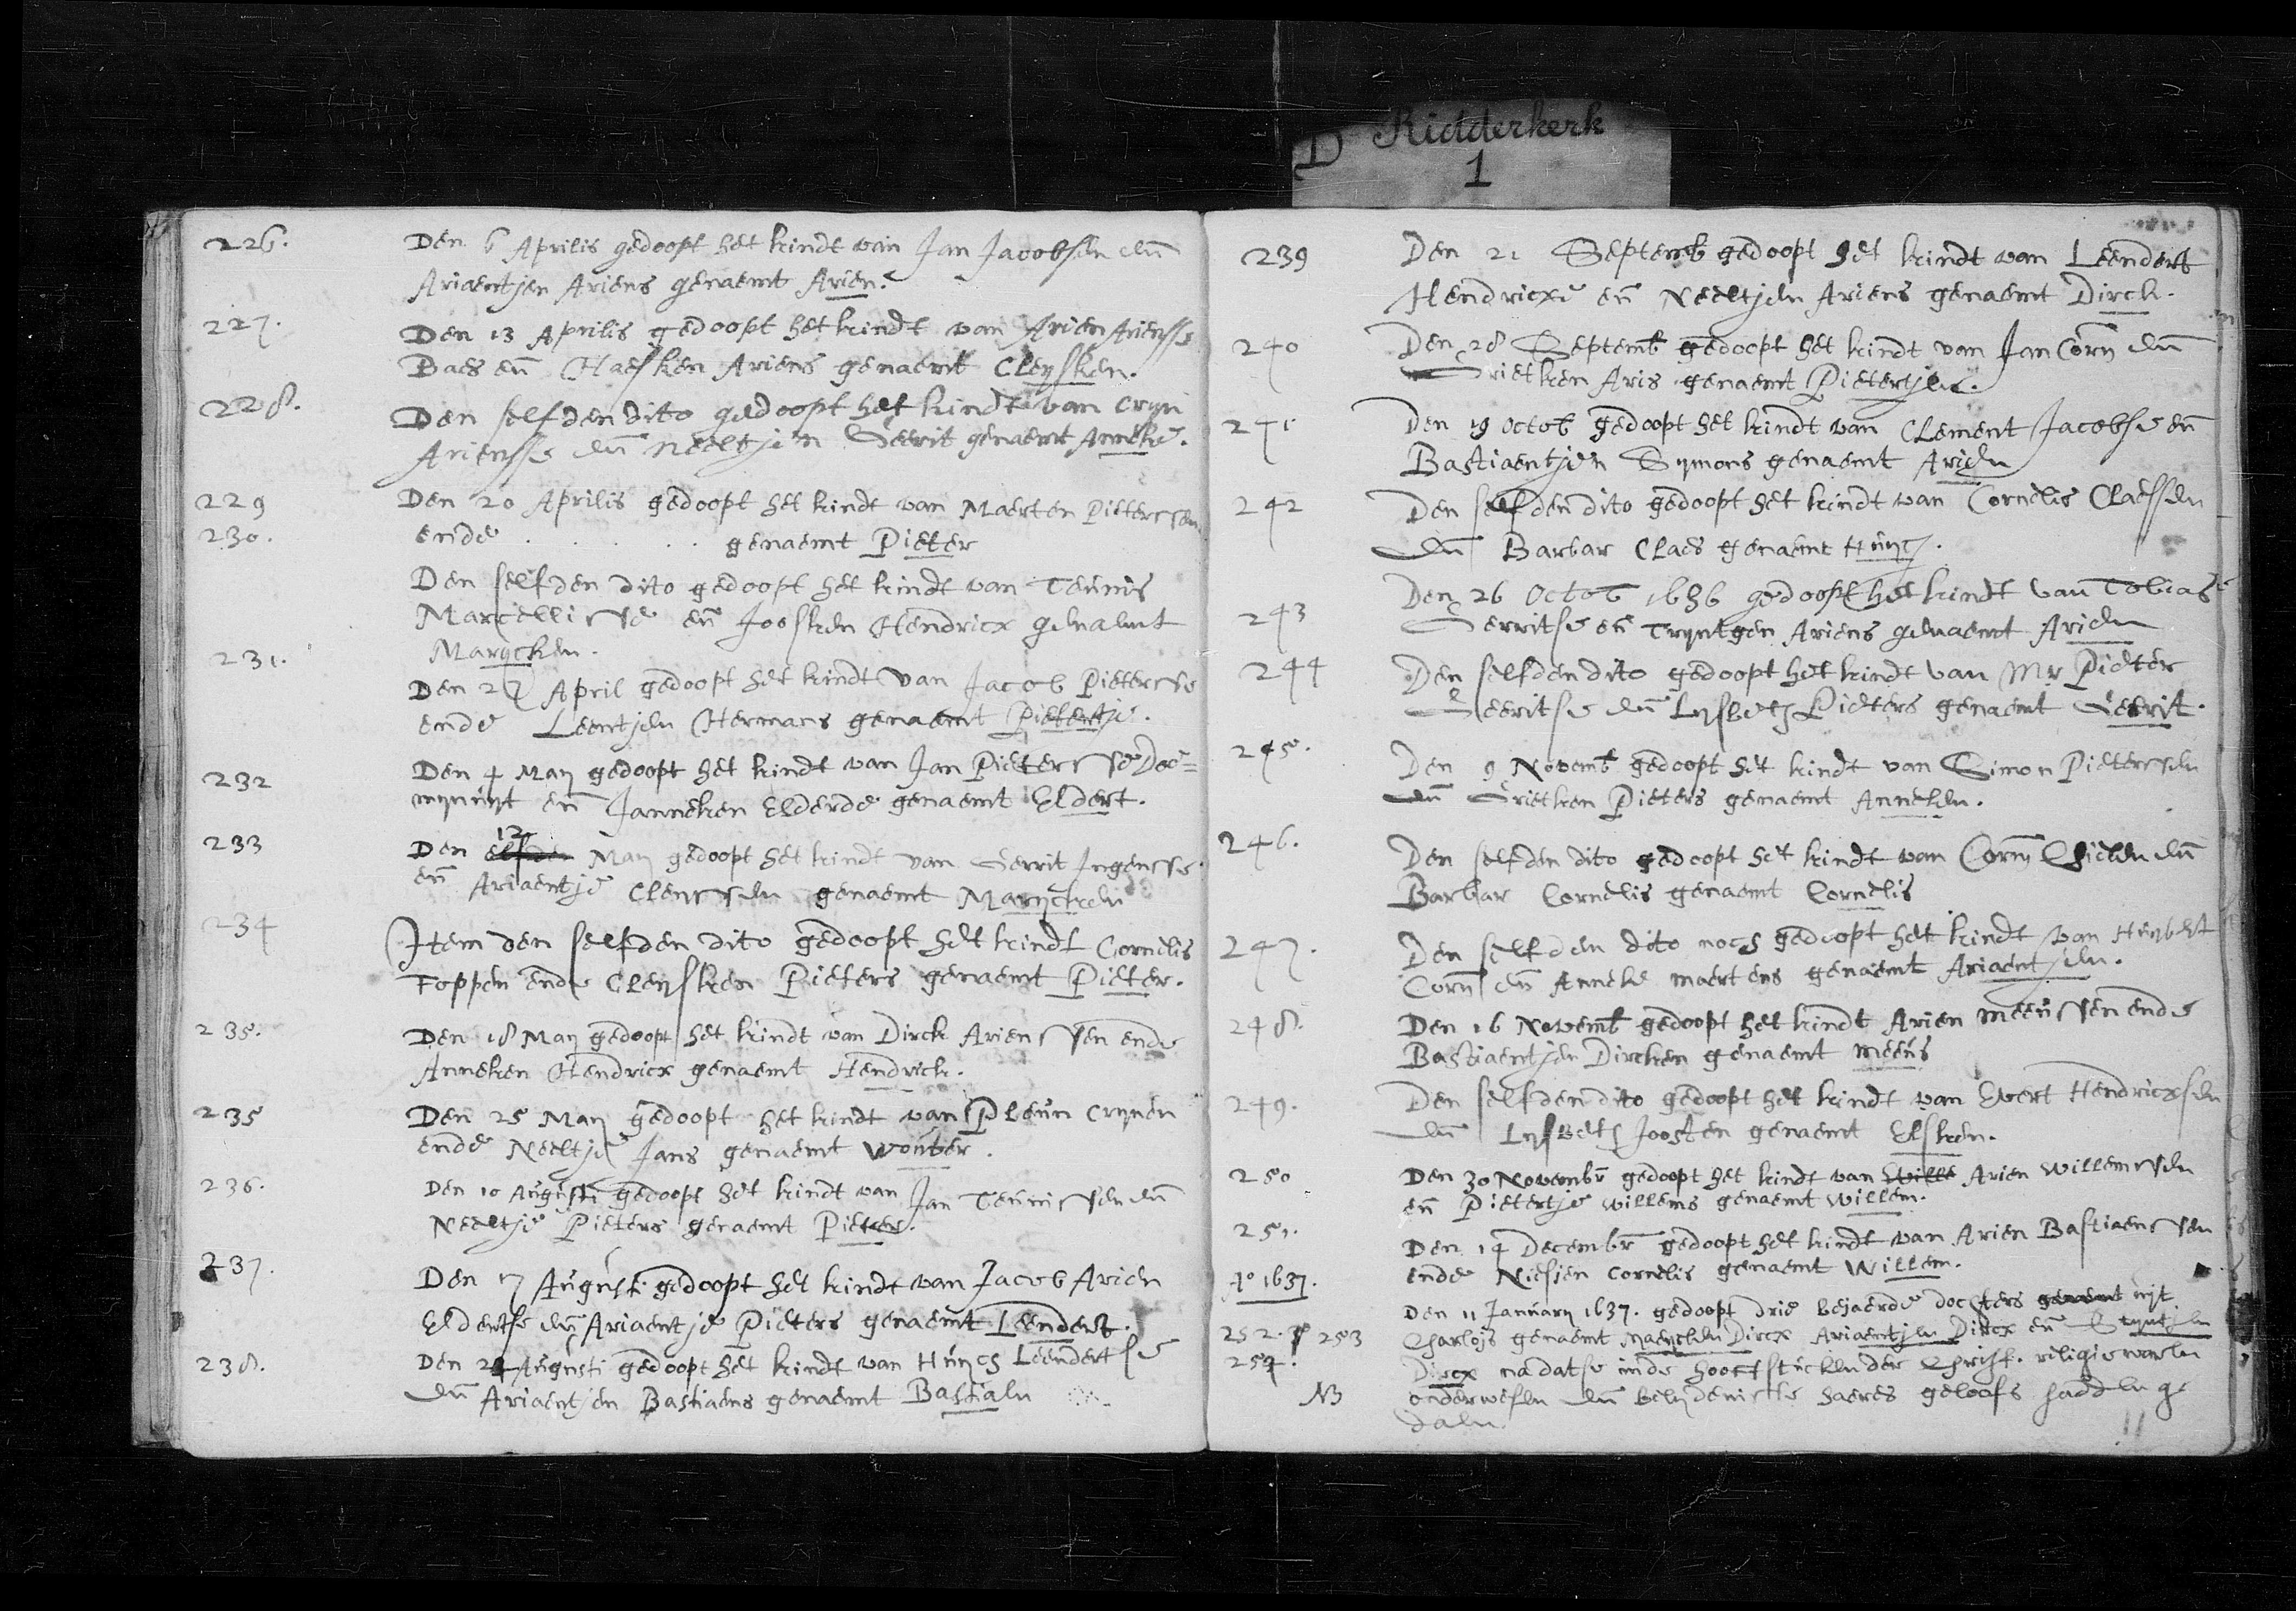 D Ridderkerk
1
226. Den 6 Aprilis gedoopt het kindt van Jan Jacobsen en̄
Ariaentjen Ariens genaemt Arien.
227. Den 13 Aprilis gedoopt het kindt van Arien Ariensse
Baes en̄ Haesken Ariens genaemt Cleysken.
228. Den selfden dito gedoopt het kindt van Cryn
Ariensse en̄ Neeltjen Gerrit genaemt Anneke.
229 Den 20 Aprilis gedoopt het kindt van Maerten Pieterssen
230. ende . . . . . genaemt Pieter
Den selfden dito gedoopt het kindt van Teunis
Marcellisse en̄ Joosken Hendricx genaemt
Marycken.
231. Den 27 April gedoopt het kindt van Jacob Pietersse
ende Leentjen Hermans genaemt Pietertje.
232 Den 4 May gedoopt het kindt van Jan Pietersse Doe=
mynuyt en̄ Janneken Elderde genaemt Eldert.
233 Den elfden 12 May gedoopt het kindt van Gerrit Ingensse
en̄ Ariaentje Clenssen genaemt Marycken
234 Item den selfden dito gedoopt het kindt Cornelis
Foppen ende Cleysken Pieters genaemt Pieter.
235. Den 18 May gedoopt het kindt van Dirck Arienssen ende
Anneken Hendricx genaemt Hendrick.
235 Den 25 May gedoopt het kindt van Pleun Crynen
ende Neeltje Jans genaemt Wouter.
236. Den 10 Augusti gedoopt het kindt van Jan Teunissen en̄
Neeltje Pieters genaemt Pieter.
237. Den 17 Augusti gedoopt het kindt van Jacob Arien
Eldertse en̄ Ariaentje Pieters genaemt Leendert.
238. Den 24 Augusti gedoopt het kindt van Huych Leendertse
en̄ Ariaentjen Bastiaens genaemt Bastiaen
239 Den 21 Septemb gedoopt het kindt van Leendert
Hendricxe en̄ Neeltjen Ariens genaemt Dirck.
240 Den 28 Septemb gedoopt het kindt van Jan Corn en̄
Grietken Aris genaemt Pietertjen.
241 Den 19 Octob gedoopt het kindt van Clement Jacobse en̄
Bastiaentjen Symons genaemt Arien
242 Den selfden dito gedoopt het kindt van Cornelis Claessen
en̄ Barbar Claes genaemt Huych.
243 Den 26 Octob 1636 gedoopt het kindt van Tobias
Gerritse en̄ Tryntgen Ariens genaemt Arien
244 Den selfden dito gedoopt het kindt van Mr Pieter
Geeritse en̄ Lysbeth Pieters genaemt Geerit.
245. Den 9 Novemb gedoopt het kindt van Simon Pieterssen
en̄ Grietken Pieters genaemt Anneken.
246. Den selfden dito gedoopt het kindt van Corn Chielen en̄
Barbar Cornelis genaemt Cornelis
247. Den selfden dito noch gedoopt het kindt van Huybert
Corn en̄ Anneke Maertens genaemt Ariaentjen.
248. Den 16 Novemb gedoopt het kindt Arien Meeussen ende
Bastiaentjen Dircken genaemt Meeus
249. Den selfden dito gedoopt het kindt van Evert Hendricxsen
en̄ Lysbeth Joosten genaemt Elsken.
250 Den 30 Novembr gedoopt het kindt van Wille Arien Willemssen
en̄ Pietertje Willems genaemt Willem.
251. Den 14 Decembr gedoopt het kindt van Arien Bastiaenssen
ende Niesjen Cornelis genaemt Willem.
Ao 1637.
Den 11 January 1637. gedoopt drie bejaerde dochters genaemt uyt
252. 253 Charlois genaemt Maeycken Dircx Ariaentjen Dircx en̄ Tryntjen
254. Dircx nadatse inde hooftstucken der Christ. religie waren
NB onderwesen en̄ belydenisse haeres geloofs hadden ge
daen